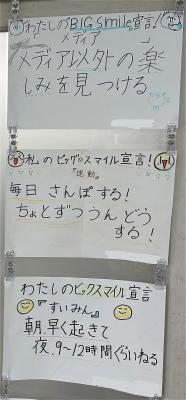 わたしのBIG Smile宣言!
メディア
メディア以外の楽
しみを見つける
私のビッグスマイル宣言!
『運動』
毎日 さんぽする!
ちょとずつうんどう
する!
わたしのビックスマイル宣言
『すいみん』
朝、早く起きて
夜、9~12時間ぐらいねる